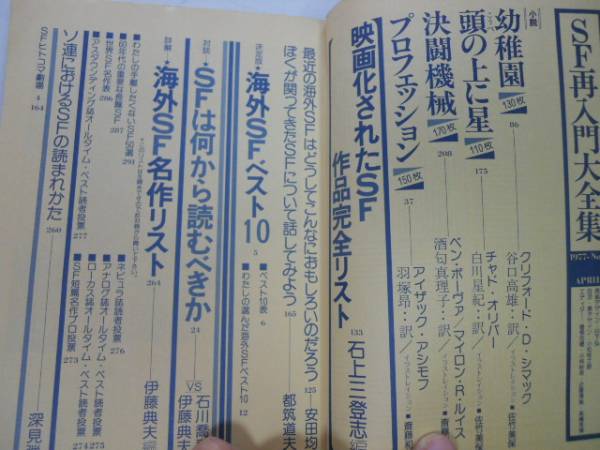 SF再入門大全集
1977-No
APRIL
小説
幼稚園
130枚
86
クリフォード・D・シマック
谷口高雄::訳／イラストレイション■佐竹美保
頭の上に星
110枚
175
チャド・オリバー
白川星紀::訳／イラストレイション■佐竹美保
決闘機械
170枚
208
ベン・ボーヴァ／マイロン・R・ルイス
酒匂真理子::訳／イラストレイション■斎藤和
プロフェッション
150枚
37
アイザック・アシモフ
羽塚昻::訳／イラストレイション■斎藤
映画化されたSF
作品完全リスト
133
石上三登志編
最近の海外SFはどうしてこんなにおもしろいのだろう
125
安田均
ぼくが関ってきたSFについて話してみよう
165
都筑道夫
決定版●
海外SFベスト10
5
■ベスト10表 6
■わたしの選んだ海外SFベスト10 12
対談●
SFは何から読むべきか
24
石川喬
VS
伊藤典夫
詳解●
海外SF名作リスト
264
伊藤典夫編
■わたしの手離したくないSF50選 291
■60年代の重要な長篇SF 287
■世界SF名作表 286
■アスタウンディング誌オールタイム・ベスト読者投票 277
■ネビュラ誌読者投票 276
■アナログ誌オールタイム・ベスト読者投票 275
■ローカス誌オールタイム・ベスト読者投票 274
■SF短篇名作プロ投票 273
ソ連におけるSFの読まれかた
260
深見弾
SFヒトコマ劇場 4
164